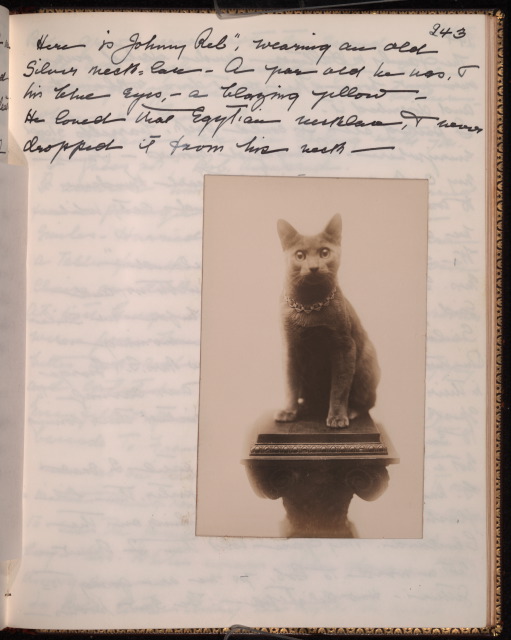 243
Here is Johnny Reb", wearing an old
Silver neck-lace - A year old he was, &
his blue eyes, - a blazing yellow -
He loved that Egytian necklace, & never
dropped it from his neck -